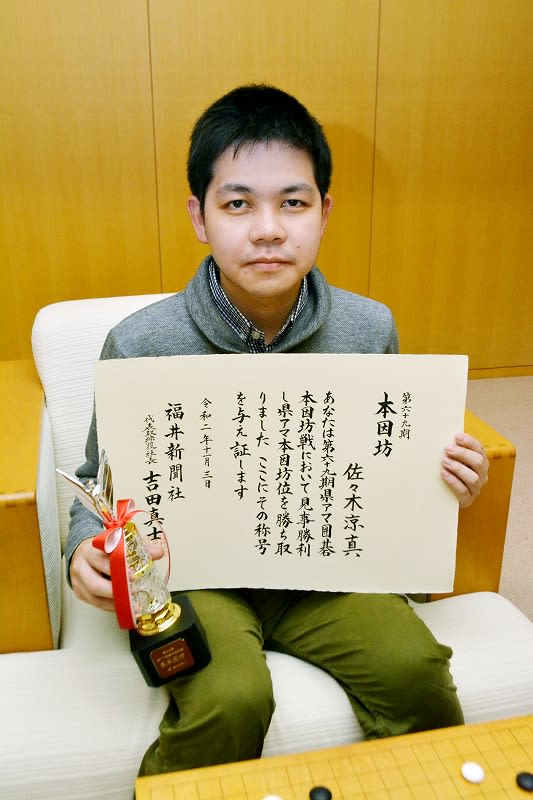 第六十九期
本因坊
佐々木涼真
あなたは第六十九期県アマ囲碁
本因坊戦において見事勝利
し県アマ本因坊位を勝ち取
りました ここにその称号
を与え証します
令和二年十一月三日
福井新聞社
代表取締役社長 吉田真士